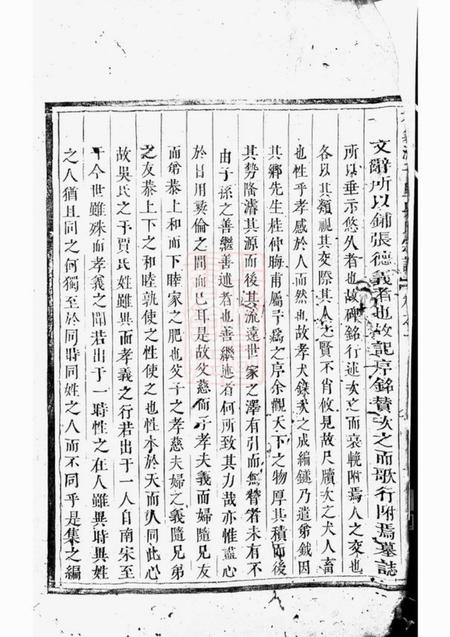 文辭所以鋪張德義者也故記序銘贊次之而歌行附焉墓誌
所以垂示悠久者也故碑銘行述次之而哀輓附焉人之交也
各以其類視其交際其人之賢不肖攸見故尺牘次之犬人畜
也性乎孝感於人而然也故孝犬錄次之成編鋟乃遣弟鉞因
其鄉先生桂仲晦甫屬予為之序余觀天下之物厚其積而後
其勢隆濬其源而後其流遠世家之澤有引而無替者未有不
由子孫之善繼善述者也善繼述者何所致其力哉亦惟盡心
於日用彝倫之間而已耳是故父慈而子孝夫義而婦隨兄友
而弟恭上和而下睦家之肥也父子之孝慈夫婦之義隨兄弟
之友恭上下之和睦孰使之性使之也性本於天而人同此心
故吳氏之于賈氏姓雖異而孝義之行若出于一人自南宋至
于今世雖殊而孝義之聞若出于一時性之在人雖異時異姓
之人猶且同之何獨至於同時同姓之人而不同乎是集之編